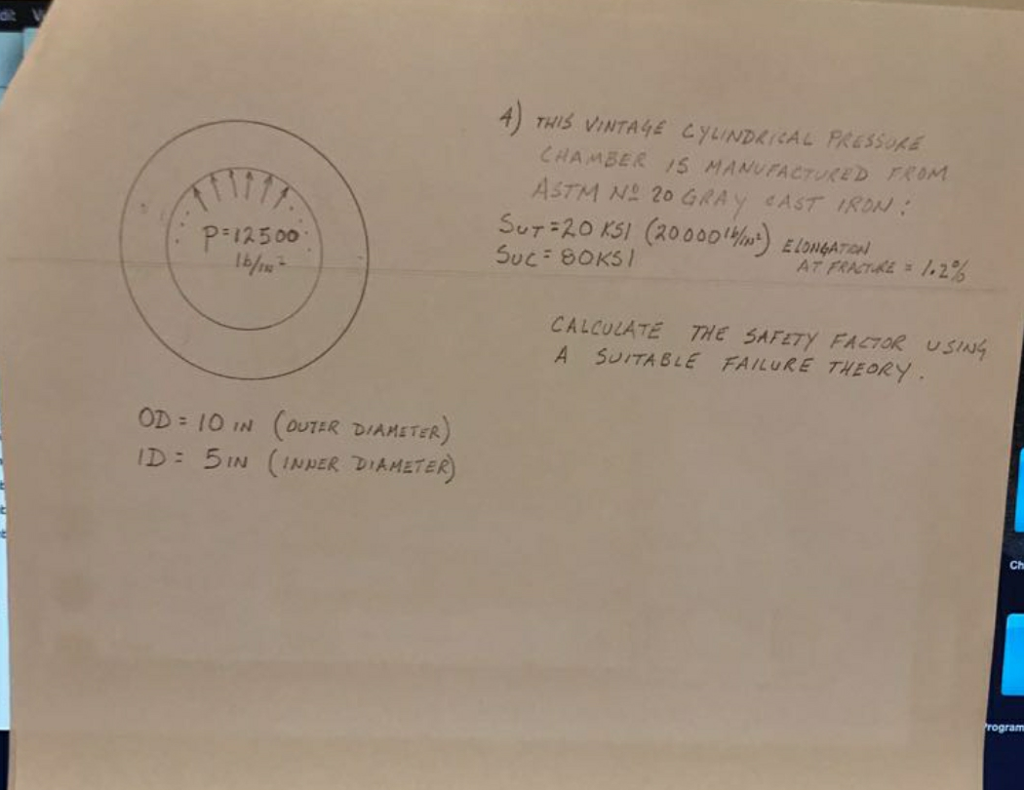 4) THIS VINTAGE CYLINDRICAL PRESSURE
CHAMBER IS MANUFACTURED FROM
ASTM Nº 20 GRAY CAST IRON:
SUT=20 KSI (20000 lb/in²) ELONGATION
AT FRACTURE = 1.2%
SUC= 80KSI
CALCULATE THE SAFETY FACTOR USING
A SUITABLE FAILURE THEORY.
P=12500
lb/in²
OD = 10 IN (OUTER DIAMETER)
ID = 5 IN (INNER DIAMETER)
Ch
Program